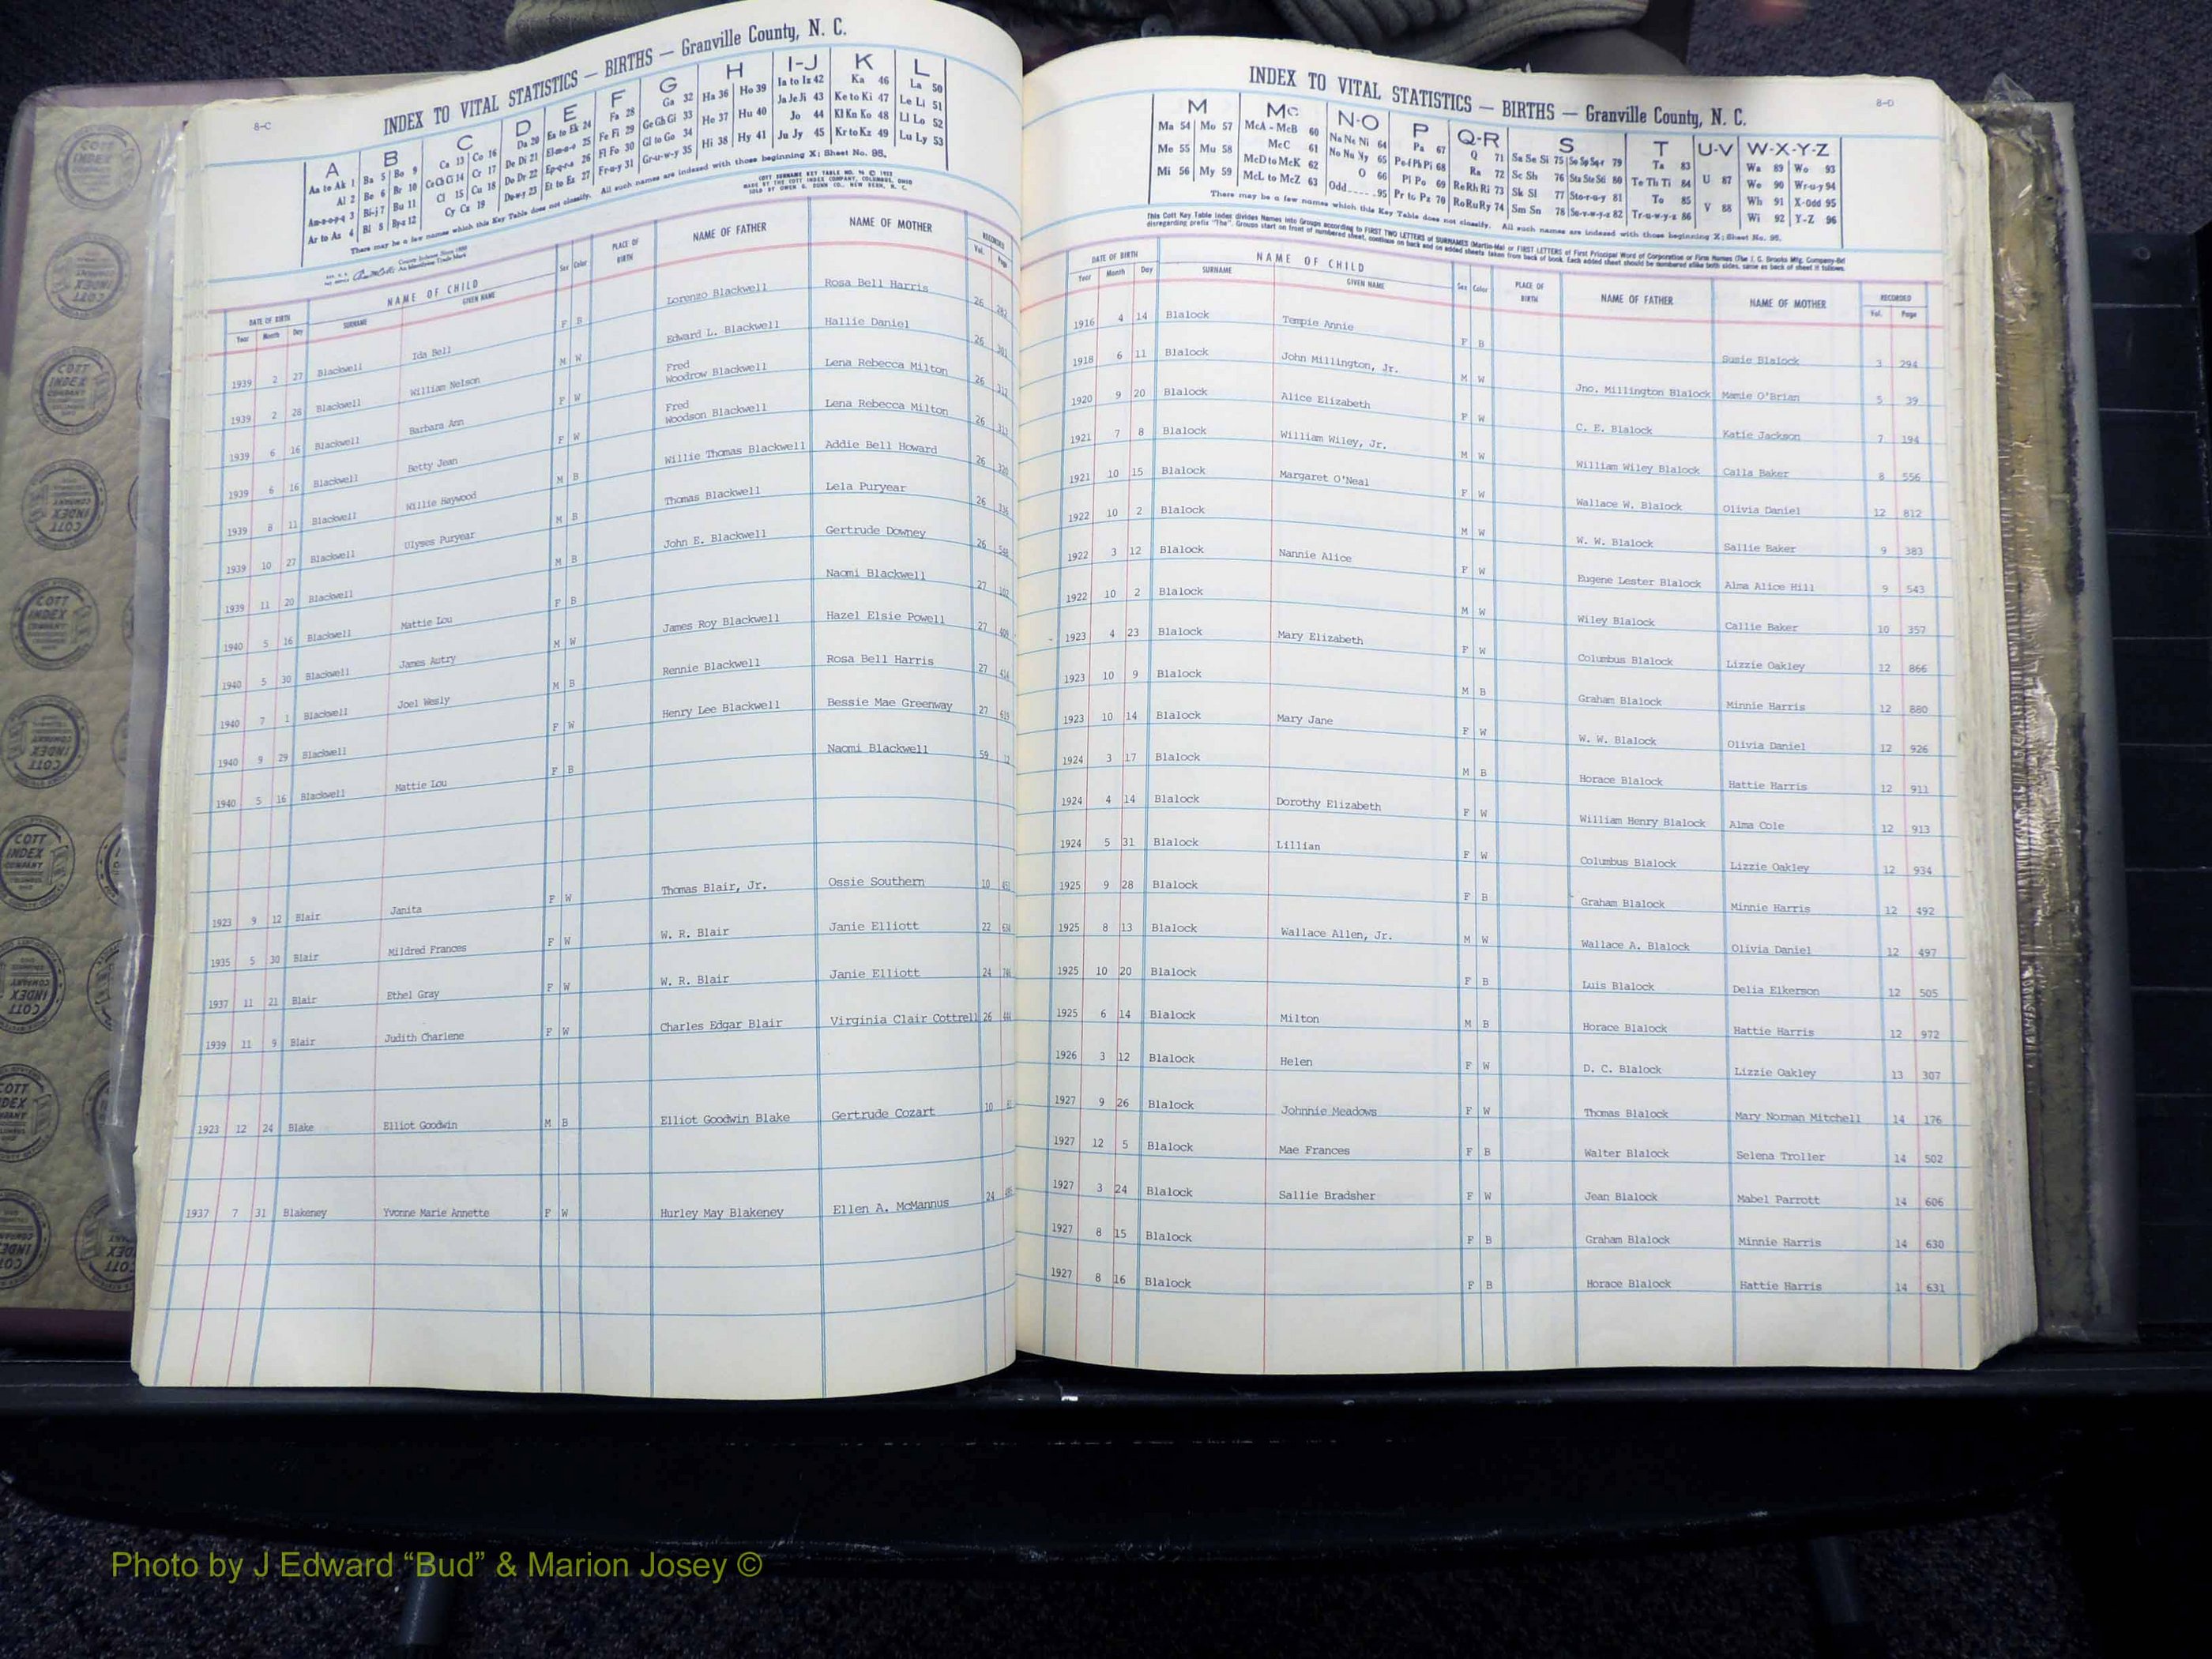 8-C
INDEX TO VITAL STATISTICS — BIRTHS — Granville County, N. C.
A B C D E F G H I-J K L
Aa to Ak 1 Ba 5 Bo 9 Ca 13 Co 16 Da 20 Ea to Ek 24 Fa 28 Ga 32 Ha 36 Ho 39 Ia to Iz 42 Ka 46 La 50
Al 2 Be 6 Br 10 Ce Ch Ci 14 Cr 17 De Di 21 El-m-n-o 25 Fe Fi 29 Ge Gh Gi 33 He 37 Hu 40 Ja Je Ji 43 Ke to Ki 47 Le Li 51
Am-n-o-p-q 3 Bi-j 7 Bu 11 Cl 15 Cu 18 Do Dr 22 Ep-q-r-s 26 Fl Fo 30 Gl to Go 34 Jo 44 Kl Kn Ko 48 Ll Lo 52
Ar to Az 4 Bl 8 By-z 12 Cy Cz 19 Du-w-y 23 Et to Ez 27 Fr-u-y 31 Gr-u-w-y 35 Hi 38 Hy 41 Ju Jy 45 Kr to Kz 49 Lu Ly 53
There may be a few names which this Key Table does not classify. All such names are indexed with those beginning X; Sheet No. 95.
COTT SURNAME KEY TABLE NO. 96 © 1952
MADE BY THE COTT INDEX COMPANY, COLUMBUS, OHIO
SOLD BY OWEN G. DUNN CO., NEW BERN, N. C.
DATE OF BIRTH NAME OF CHILD Sex Color PLACE OF BIRTH NAME OF FATHER NAME OF MOTHER RECORDED
Year Month Day SURNAME GIVEN NAME Vol. Page
1939 2 27 Blackwell Ida Bell F B Lorenzo Blackwell Rosa Bell Harris 26
1939 2 28 Blackwell William Nelson M W Edward L. Blackwell Hallie Daniel 26
1939 6 16 Blackwell Barbara Ann F W Fred Woodrow Blackwell Lena Rebecca Milton 26
1939 6 16 Blackwell Betty Jean F W Fred Woodson Blackwell Lena Rebecca Milton 26
1939 8 11 Blackwell Willie Haywood M B Willie Thomas Blackwell Addie Bell Howard 26
1939 10 27 Blackwell Ulyses Puryear M B Thomas Blackwell Lela Puryear 26
1939 11 20 Blackwell M B John E. Blackwell Gertrude Downey 26
1940 5 16 Blackwell Mattie Lou F B Naomi Blackwell 27
1940 5 30 Blackwell James Autry M W James Roy Blackwell Hazel Elsie Powell 27
1940 7 1 Blackwell Joel Wesly M B Rennie Blackwell Rosa Bell Harris 27
1940 9 29 Blackwell F W Henry Lee Blackwell Bessie Mae Greenway 27
1940 5 16 Blackwell Mattie Lou F B Naomi Blackwell 59
1923 9 12 Blair Janita F W Thomas Blair, Jr. Ossie Southern 10
1935 5 30 Blair Mildred Frances F W W. R. Blair Janie Elliott 22
1937 11 21 Blair Ethel Gray F W W. R. Blair Janie Elliott 24
1939 11 9 Blair Judith Charlene F W Charles Edgar Blair Virginia Clair Cottrell 26
1923 12 24 Blake Elliot Goodwin M B Elliot Goodwin Blake Gertrude Cozart 10
1937 7 31 Blakeney Yvonne Marie Annette F W Hurley May Blakeney Ellen A. McMannus 24
8-D
INDEX TO VITAL STATISTICS — BIRTHS — Granville County, N. C.
M Mc N-O P Q-R S T U-V W-X-Y-Z
Ma 54 Mo 57 McA - McB 60 Na Ne Ni 64 Pa 67 Q 71 Sa Se Si 75 So Sp Sq-r 79 Ta 83 Wa 89 Wo 93
Me 55 Mu 58 McC 61 No Nu Ny 65 Pe-f Ph Pi 68 Ra 72 Sc Sh 76 Sta Ste Sti 80 Te Th Ti 84 U 87 We 90 Wr-u-y 94
Mi 56 My 59 McD to McK 62 O 66 Pl Po 69 Re Rh Ri 73 Sk Sl 77 Sto-r-u-y 81 To 85 Wh 91 X-Odd 95
McL to McZ 63 Odd 95 Pr to Pz 70 Ro Ru Ry 74 Sm Sn 78 Su-v-w-y-z 82 Tr-u-w-y-z 86 V 88 Wi 92 Y-Z 96
There may be a few names which this Key Table does not classify. All such names are indexed with those beginning X; Sheet No. 95.
This Cott Key Table Index divides Names into Groups according to FIRST TWO LETTERS of SURNAMES (Martin-Ma) or FIRST LETTERS of First Principal Word of Corporation or Firm Names (The J. C. Brooks Mfg. Company-Br)
disregarding prefix "The". Groups start on front of numbered sheet, continue on back and on added sheets taken from back of book. Each added sheet should be numbered alike both sides, same as back of sheet it follows.
DATE OF BIRTH NAME OF CHILD Sex Color PLACE OF BIRTH NAME OF FATHER NAME OF MOTHER RECORDED
Year Month Day SURNAME GIVEN NAME Vol. Page
1916 4 14 Blalock Tempie Annie F B Susie Blalock 3 294
1918 6 11 Blalock John Millington, Jr. M W Jno. Millington Blalock Mamie O'Brian 5 39
1920 9 20 Blalock Alice Elizabeth F W C. E. Blalock Katie Jackson 7 194
1921 7 8 Blalock William Wiley, Jr. M W William Wiley Blalock Calla Baker 8 556
1921 10 15 Blalock Margaret O'Neal F W Wallace W. Blalock Olivia Daniel 12 812
1922 10 2 Blalock M W W. W. Blalock Sallie Baker 9 383
1922 3 12 Blalock Nannie Alice F W Eugene Lester Blalock Alma Alice Hill 9 543
1922 10 2 Blalock M W Wiley Blalock Callie Baker 10 357
1923 4 23 Blalock Mary Elizabeth F W Columbus Blalock Lizzie Oakley 12 866
1923 10 9 Blalock M B Graham Blalock Minnie Harris 12 880
1923 10 14 Blalock Mary Jane F W W. W. Blalock Olivia Daniel 12 926
1924 3 17 Blalock M B Horace Blalock Hattie Harris 12 911
1924 4 14 Blalock Dorothy Elizabeth F W William Henry Blalock Alma Cole 12 913
1924 5 31 Blalock Lillian F W Columbus Blalock Lizzie Oakley 12 934
1925 9 28 Blalock F B Graham Blalock Minnie Harris 12 492
1925 8 13 Blalock Wallace Allen, Jr. M W Wallace A. Blalock Olivia Daniel 12 497
1925 10 20 Blalock F B Luis Blalock Delia Elkerson 12 505
1925 6 14 Blalock Milton M B Horace Blalock Hattie Harris 12 972
1926 3 12 Blalock Helen F W D. C. Blalock Lizzie Oakley 13 307
1927 9 26 Blalock Johnnie Meadows F W Thomas Blalock Mary Norman Mitchell 14 176
1927 12 5 Blalock Mae Frances F B Walter Blalock Selena Troller 14 502
1927 3 24 Blalock Sallie Bradsher F W Jean Blalock Mabel Parrott 14 606
1927 8 15 Blalock F B Graham Blalock Minnie Harris 14 630
1927 8 16 Blalock F B Horace Blalock Hattie Harris 14 631
Photo by J Edward “Bud” & Marion Josey ©